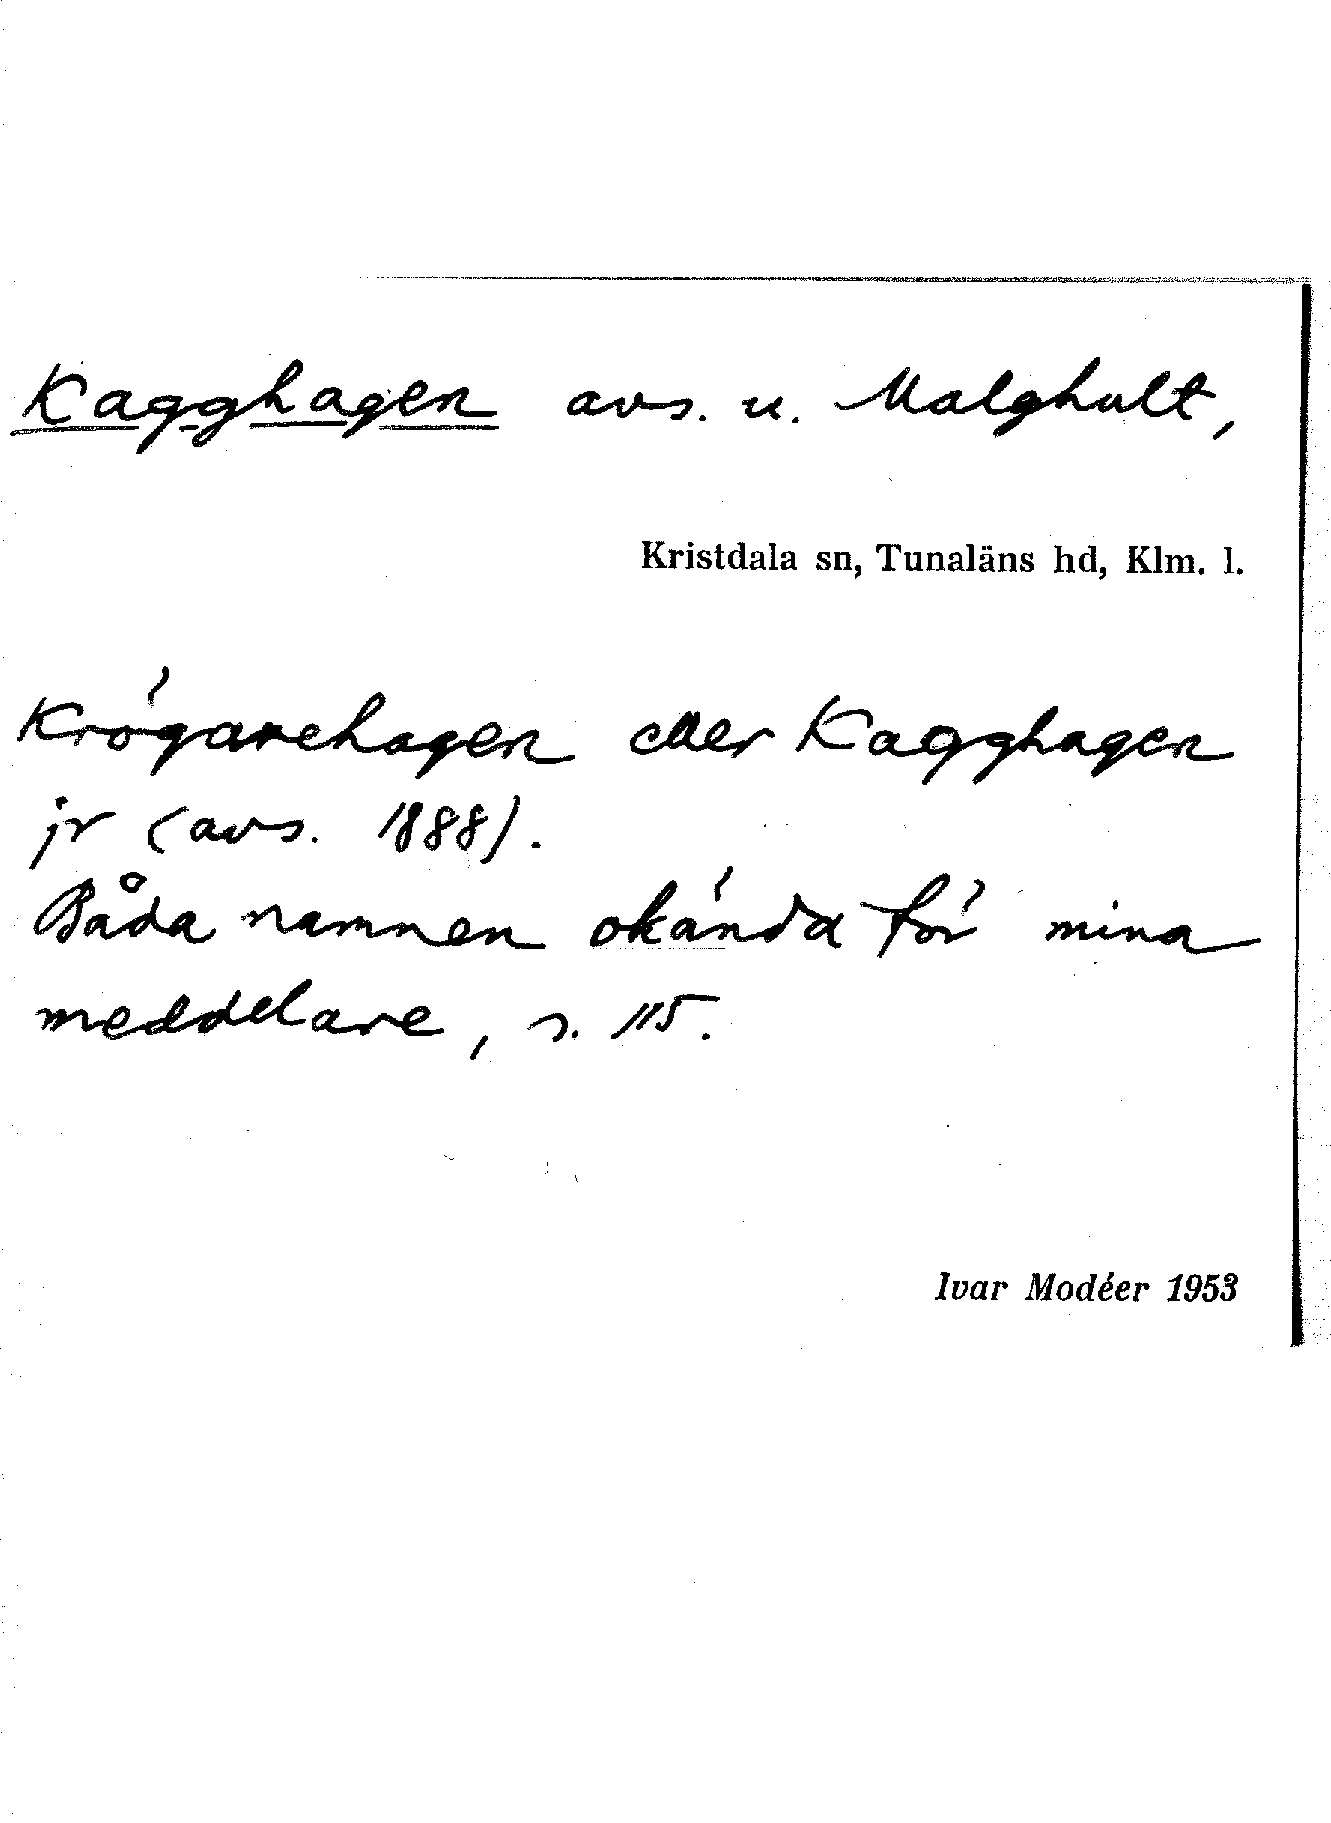 Kagghagen avs. u. Malghult,
Kristdala sn, Tunaläns hd, Klm. l.
Krögarehagen eller Kagghagen
jr (avs. 1888).
Båda namnen okända för mina
meddelare, s. 115.
Ivar Modéer 1953